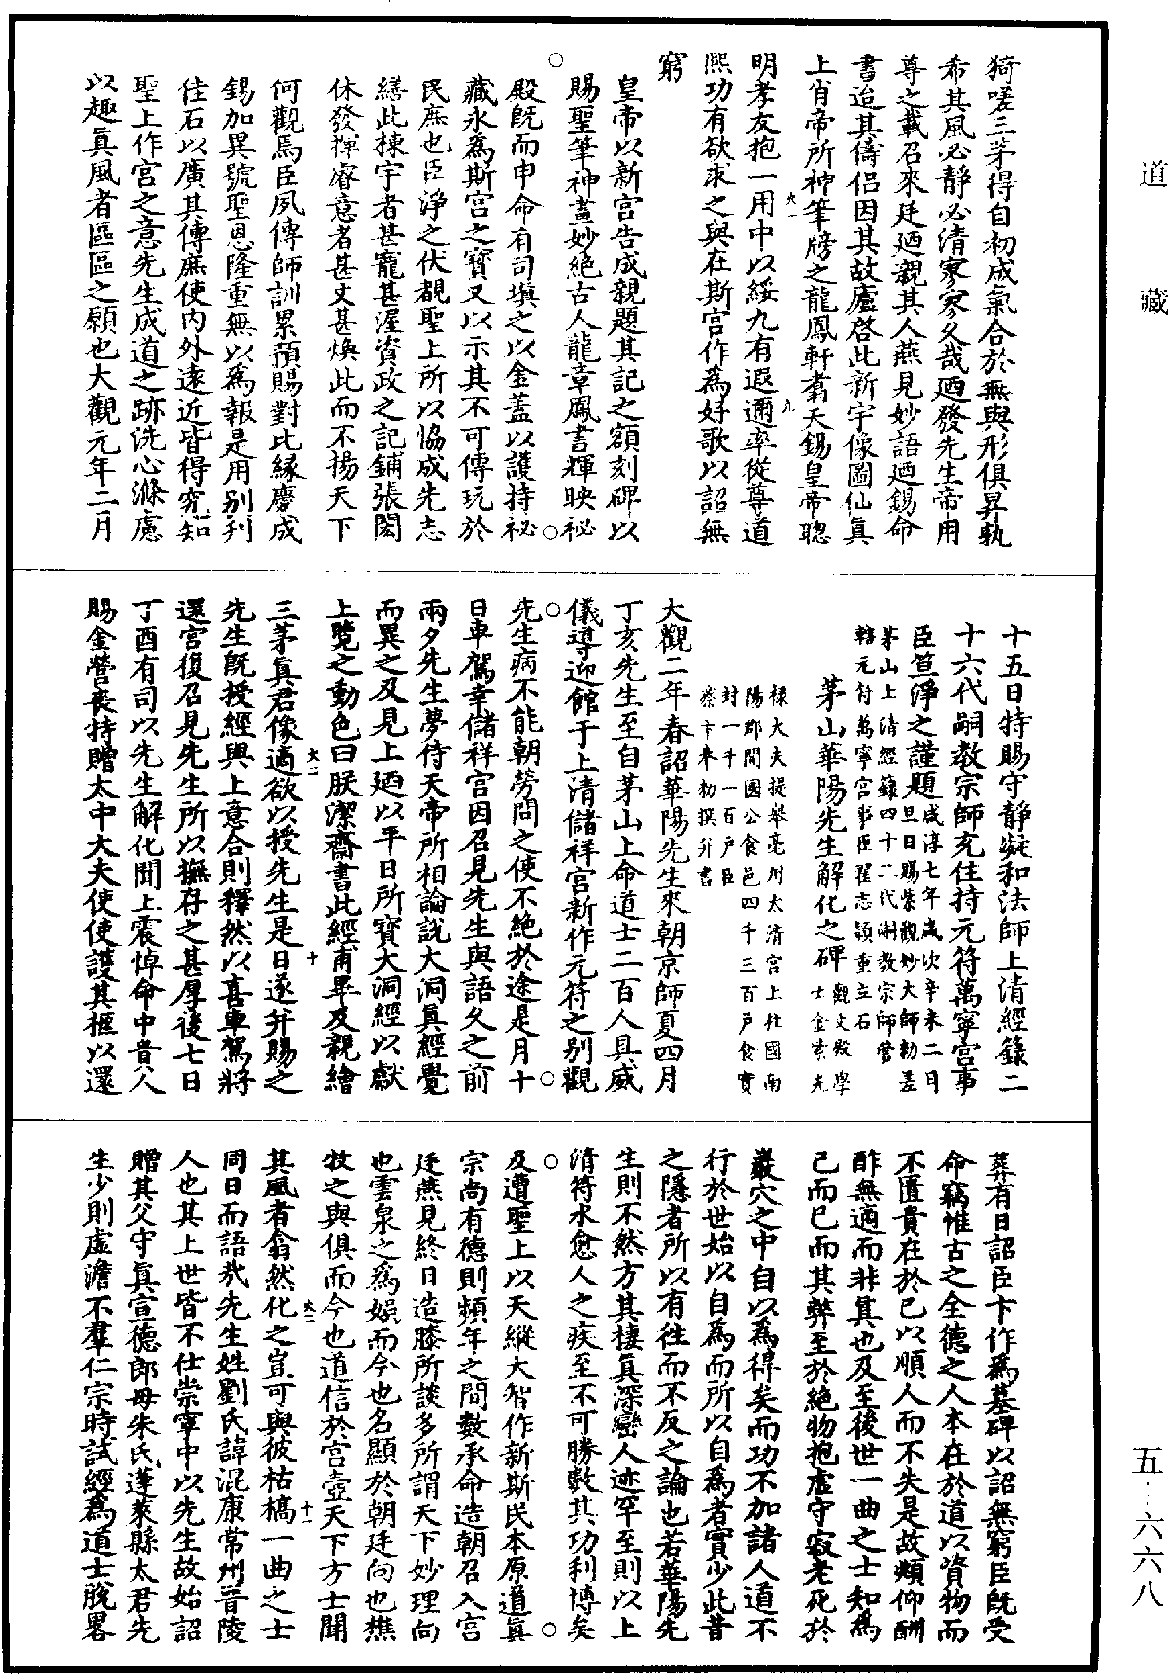 道藏
猗嗟三茅得自初成氣合於無與形俱昇執
希其風必靜必清家家久哉廼發先生帝用
尊之載召來廷廼親其人燕見妙語廼錫命
書迨其儔侶因其故廬啓此新宇像圖仙眞
上肖帝所神筆牓之龍鳳軒翥天錫皇帝聰
明孝友抱一用中以綏九有遐邇率從尊道
熙功有欲求之與在斯宮作爲好歌以詔無
窮
皇帝以新宮告成親題其記之額刻碑以
賜聖筆神畫妙絶古人龍章鳳書輝映祕
殿旣而申命有司填之以金蓋以護持祕
藏永爲斯宮之寶又以示其不可傳玩於
民庶也臣淨之伏覩聖上所以恊成先志
繕此揀宇者甚寵甚渥資政之記鋪張閎
休發揮睿意者甚丈甚煥此而不揚天下
何觀焉臣夙傳師訓累蒞賜對此緣慶成
錫加異號聖恩隆重無以爲報是用别刋
佳石以廣其傳庶使内外遠近皆得究知
聖上作宮之意先生成道之跡洗心滌慮
以趣眞風者區區之願也大觀元年二月
十五日特賜守靜凝和法師上清經籙二
十六代嗣敎宗師充住持元符萬寧宮事
臣笪淨之謹題咸淳七年歲次辛未二月
旦日賜紫觀妙大師勅差
茅山上清經籙四十二代嗣敎宗師管
轄元符萬寧宮事臣翟志穎重立石
茅山華陽先生解化之碑觀文殿學
士金紫光
祿大夫提舉亳州太清宮上柱國南
陽郡開國公食邑四千三百戶食實
封一千一百戶臣
蔡卞奉勅撰幷書
大觀二年春詔華陽先生來朝京師夏四月
丁亥先生至自茅山上命道士二百人具威
儀導迎館于上清儲祥宮新作元符之别觀
先生病不能朝勞問之使不絶於途是月十
日車駕幸儲祥宮因召見先生與語久之前
兩夕先生夢侍天帝所相論說大洞眞經覺
而異之及見上廼以平日所寶大洞經以獻
上覽之動色曰朕潔齋書此經甫畢及親繪
三茅眞君像適欲以授先生是日遂幷賜之
先生旣授經與上意合則釋然以喜車駕將
還宮復召見先生所以撫存之甚厚後七日
丁酉有司以先生解化聞上震悼命中貴人
賜金營喪特贈太中大夫使使護其柩以還
葬有日詔臣卞作爲墓碑以詔無窮臣旣受
命竊惟古之全德之人本在於道以資物而
不匱貴在於己以順人而不失是故頫仰酬
酢無適而非其也及至後世一曲之士知爲
己而已而其弊至於絶物抱虛守寂老死於
巖穴之中自以爲得矣而功不加諸人道不
行於世始以自爲而所以自爲者實少此昔
之隱者所以有往而不反之論也若華陽先
生則不然方其棲眞深巒人迹罕至則以上
清符水愈人之疾至不可勝數其功利博矣
及遭聖上以天縱大智作新斯民本原道眞
宗尚有德則頻年之間數承命造朝召入宮
廷燕見終日造膝所談多所謂天下妙理向
也雲泉之爲娛而今也名顯於朝廷向也樵
牧之與俱而今也道信於宮壼天下方士聞
其風者翕然化之豈可與彼枯槁一曲之士
同日而語哉先生姓劉氏諱混康常州晉陵
人也其上世皆不仕崇寧中以先生故始詔
贈其父守眞宣德郎母朱氏蓬萊縣太君先
生少則虛澹不羣仁宗時試經爲道士脫畧
五—六六八